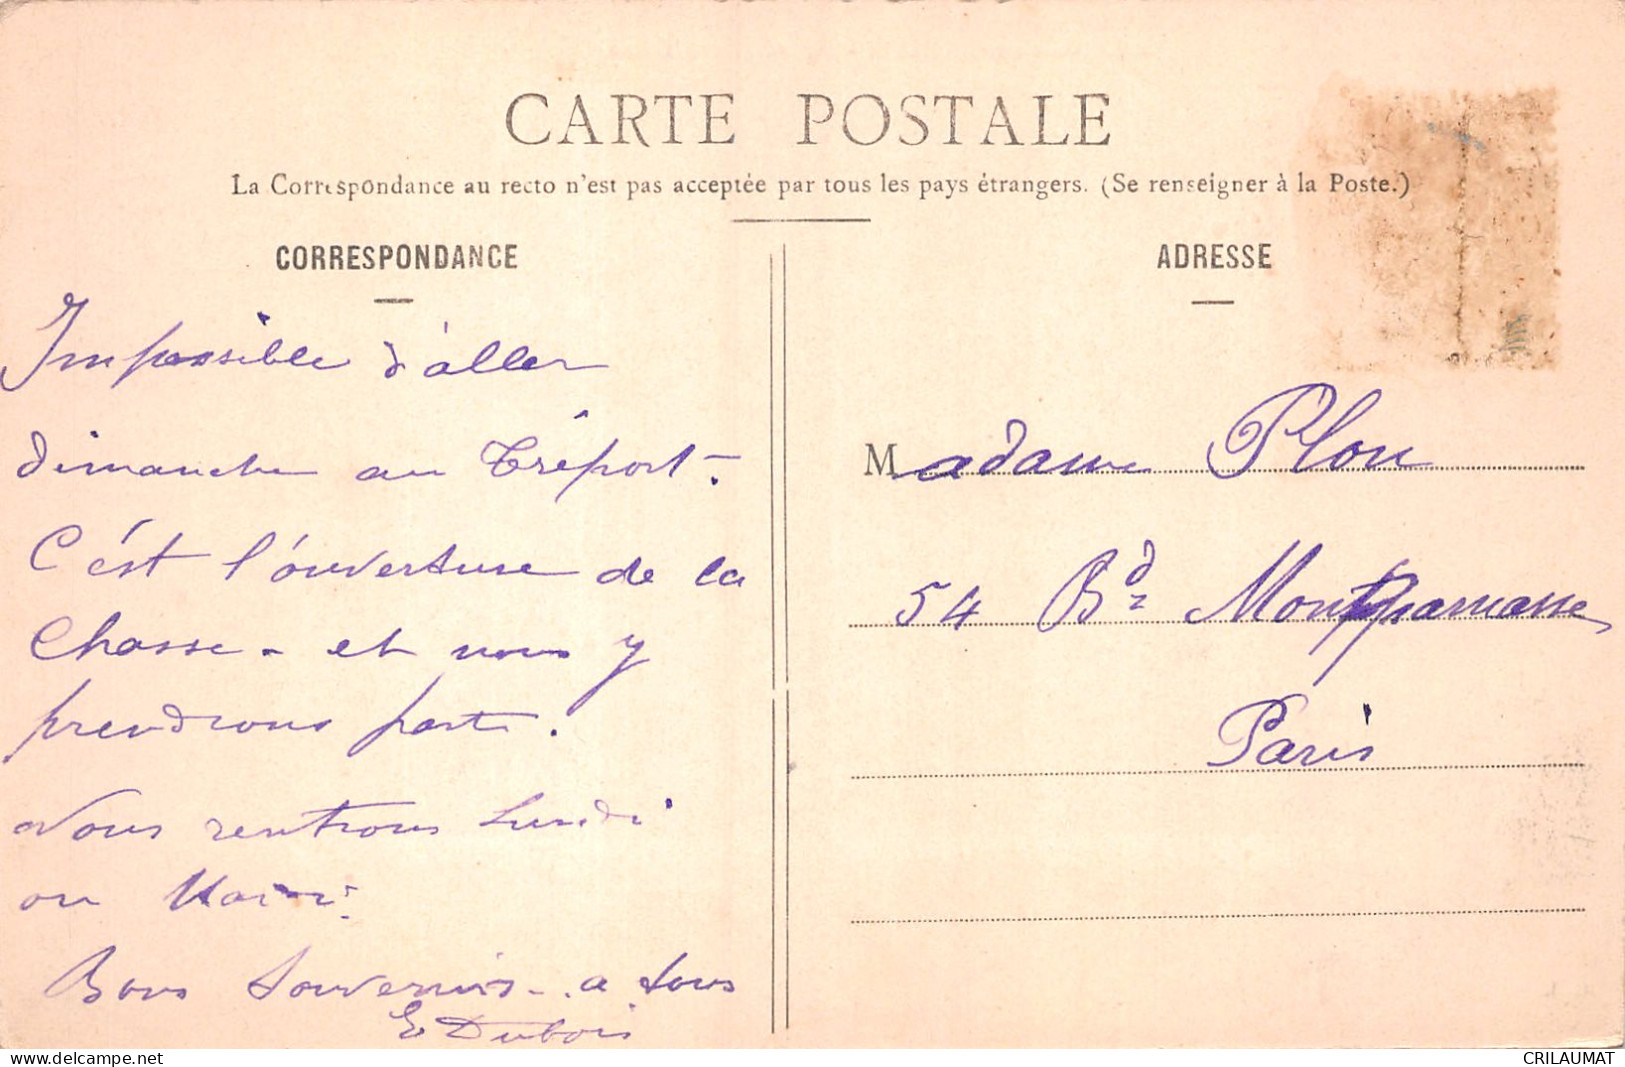 CARTE POSTALE
La Correspondance au recto n'est pas acceptée par tous les pays étrangers. (Se renseigner à la Poste.)
CORRESPONDANCE
Impossible d'aller
dimanche au Tréport.
C'est l'ouverture de la
Chasse - et nous y
prendrons part.
Nous rentrons Lundi
ou Mardi.
Bons Souvenirs - a tous
E Dubois
ADRESSE
Madame Plon
54 Bd Montparnasse
Paris
delcampe.net
CRILAUMAT